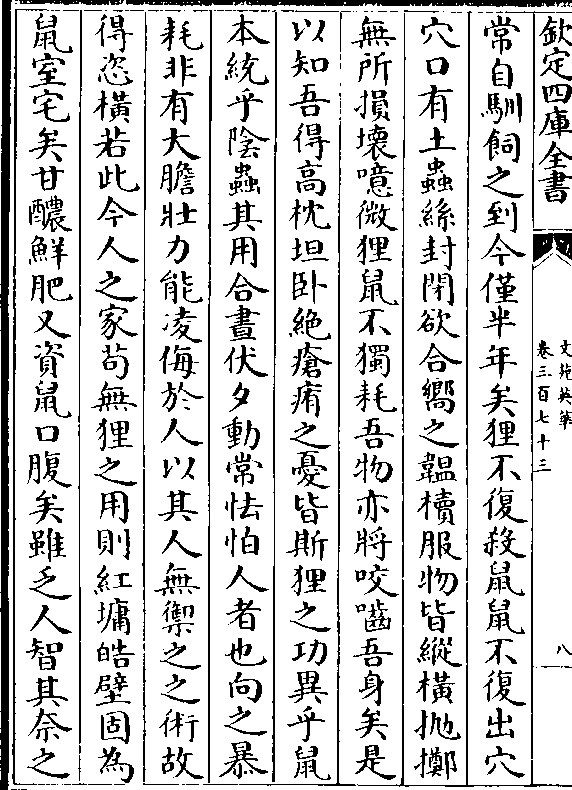 欽定四庫全書
文苑英華
卷三百七十三
八
常自馴飼之到今僅半年矣狸不復殺鼠鼠不復出穴
穴口有土蟲絲封閉欲合嚮之韞櫝服物皆縱橫抛擲
無所損壞噫微狸鼠不獨耗吾物亦將咬囓吾身矣是
以知吾得高枕坦卧絶瘡痏之憂皆斯狸之功異乎鼠
本統乎陰蟲其用合晝伏夕動常怯怕人者也向之暴
耗非有大膽壯力能凌侮於人以其人無禦之之術故
得恣橫若此今人之家苟無狸之用則紅墉皓壁固為
鼠室宅矣甘醲鮮肥又資鼠口腹矣雖乏人智其奈之